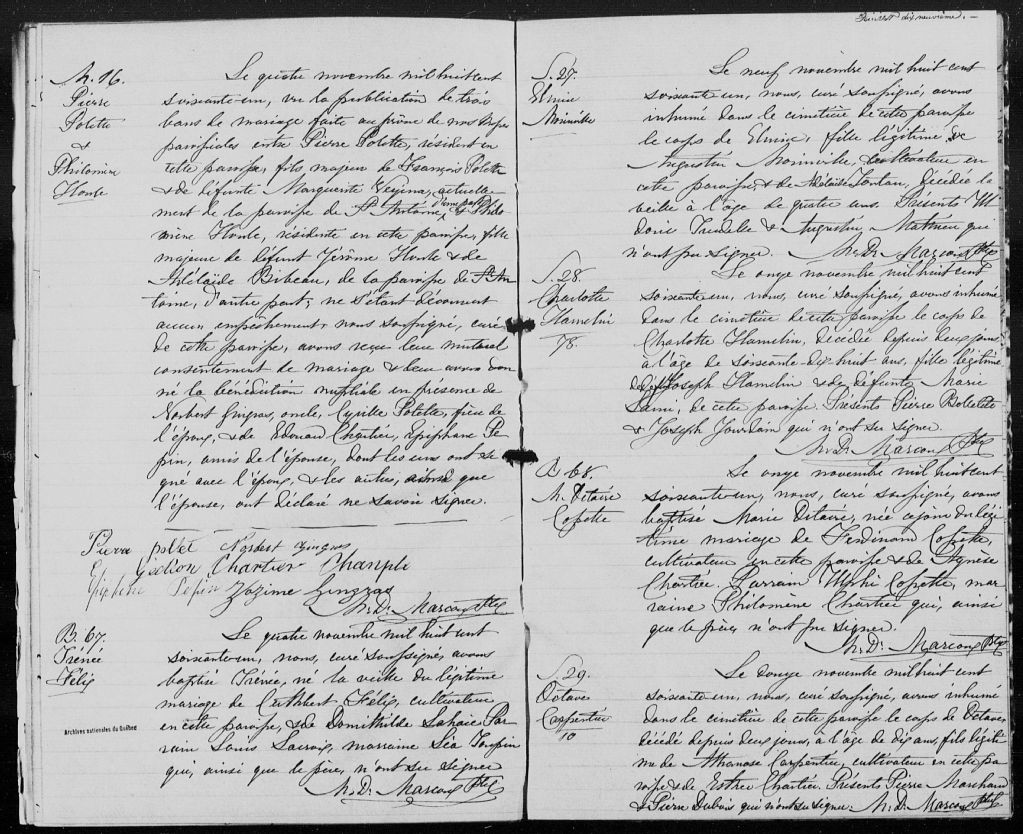 M. 16.
Pierre
Polette
&
Philomène
Houle
Le quatre novembre mil huit cent
soixante-un, vu la publication de trois
bans de mariage faite au prône de nos Messes
paroissiales entre Pierre Polette, résident en
cette paroisse, fils majeur de François Polette
& de défunte Marguerite Vezina, actuelle
ment de la paroisse de St Antoine, d'une part, & Philo
mène Houle, résidente en cette paroisse, fille
majeure de défunt Jérôme Houle & de
Adélaïde Bibeau, de la paroisse de St An
toine, d'autre part; ne s'étant découvert
aucun empêchement, nous soussigné, curé
de cette paroisse, avons reçu leur mutuel
consentement de mariage & leur avons don
né la bénédiction nuptiale en présence de
Norbert Gingras, oncle, Cyrille Polette, frère de
l'époux, & de Edouard Chartier, Epiphane Pe
pin, amis de l'épouse, dont les uns ont si
gné avec l'époux, & les autres, ainsi que
l'épouse, ont déclaré ne savoir signer.
Pierre polet Norbert Gingras
Gedeon Chartier
Epiphane Pepin Zozime Gingras
N. D. Marcoux Ptre
B. 67.
Irénée
Félix
Le quatre novembre mil huit cent
soixante-un, nous, curé soussigné, avons
baptisé Irénée, né la veille du légitime
mariage de Cuthbert Félix, cultivateur
en cette paroisse, & de Domithilde Lahaie Par
rain Louis Lauzis, marraine Léa Turpin
qui, ainsi que le père, n'ont su signer
N. D. Marcoux Ptre
Archives nationales du Québec
Feuillet dix neuvième. —
S. 27.
Elmire
Moinville
Le neuf novembre mil huit cent
soixante-un, nous, curé soussigné, avons
inhumé dans le cimetière de cette paroisse
le corps de Elmire, fille légitime de
Augustin Moinville, cultivateur en
cette paroisse, & de Adélaïde Jontan, décédée la
veille à l'âge de quatre ans. Présents M.
Doric Trudelle & Augustin Mathieu qui
n'ont pu signer. N. D. Marcoux Ptre
S. 28.
Charlotte
Hamelin
78.
Le onze novembre mil huit cent
soixante-un, nous, curé soussigné, avons inhumé
dans le cimetière de cette paroisse le corps de
Charlotte Hamelin, décédée depuis deux jours,
à l'âge de soixante-dix-huit ans, fille légitime
de défunt Joseph Hamelin & de défunte Marie
Lami, de cette paroisse. Présents Pierre Bellefete
& Joseph Jourdain qui n'ont su signer.
N. D. Marcoux Ptre
B. 68.
M. Vitaire
Copette
Le onze novembre mil huit cent
soixante-un, nous, curé soussigné, avons
baptisé Marie Vitaire, née ce jour du légi
time mariage de Ferdinand Copette,
cultivateur en cette paroisse & de Agnèse
Chartier. Parrain Ulphi Copette, mar
raine Philomène Chartier qui, ainsi
que le père, n'ont pu signer.
N. D. Marcoux Ptre
S. 29.
Octave
Carpentier
10
Le douze novembre mil huit cent
soixante-un, nous, curé soussigné, avons inhumé
dans le cimetière de cette paroisse le corps de Octave,
décédé depuis deux jours, à l'âge de dix ans, fils légiti
me de Athanase Carpentier, cultivateur en cette pa
roisse & de Esther Chartier. Présents Pierre Marchand
& Pierre Dubois qui n'ont su signer. N. D. Marcoux Ptre